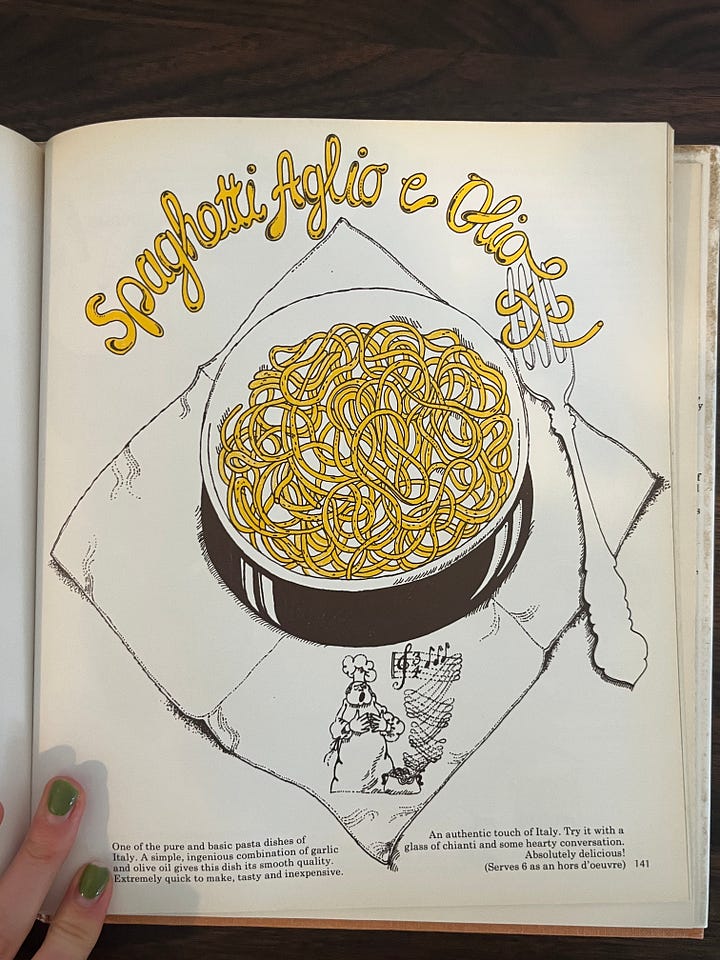 Spaghetti Aglio e Olio
One of the pure and basic pasta dishes of
Italy. A simple, ingenious combination of garlic
and olive oil gives this dish its smooth quality.
Extremely quick to make, tasty and inexpensive.
An authentic touch of Italy. Try it with a
glass of chianti and some hearty conversation.
Absolutely delicious!
(Serves 6 as an hors d'oeuvre) 141